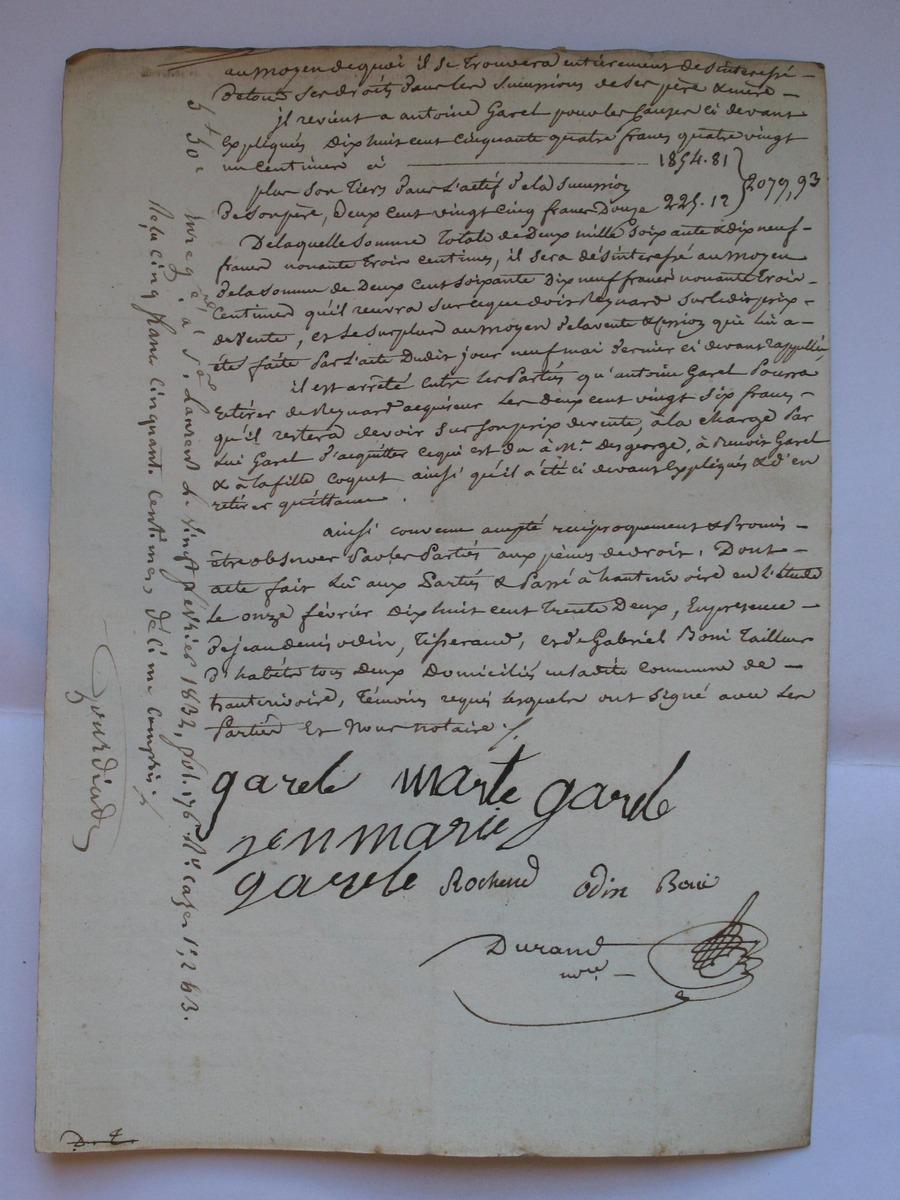 au moyen de quoi il se trouvera entièrement désinteressé
de tous ses droits dans les successions de ses père & mère
il revient a antoine Garel pour les causes ci devant
Expliqués Dix huit cent cinquante quatre francs quatre vingt
un centimes ci 1854.81
plus son tiers dans l'actif de la succession
de son père, Deux cent vingt cinq francs Douze 225.12
2079,93
De laquelle somme totale de Deux mille soixante & dix neuf
francs nonante trois centimes, il sera désinteressé au moyen
de la somme de Deux cent soixante Dix neuf francs nonante trois
Centimes qu'il recevra sur ce que doit Reynard sur le dit prix
de vente, et le surplus au moyen de la vente & cession qui lui a
été faite par l'acte dudit jour neuf mai dernier ci devant rappellé
il est arrêté entre les Parties qu'antoine Garel Pourra
retirer de Reynard acquereur les deux cent vingt six francs
qu'il restera devoir sur son prix de vente, à la charge par
lui Garel d'acquitter ce qui est du à Mr. Desgeorge, à Benoit Garel
& à la fille Coquet ainsi qu'il a été ci devant expliqués & d'en
retirer quittance.
ainsi convenu accepté reciproquement & Promis
être observer par les Parties aux peines de droit, Dont
acte fait Lu aux Parties & Passé à hauterivoire en l'étude
le onze février Dix huit cent trente Deux, En presence
de jean denis odin, Tisserand, et de Gabriel Boni tailleur
d'habits tous deux Domiciliés en ladite commune de
hauterivoire, Témoins requis lesquels ont signé avec les
Parties Et Nous notaire ./.
garele marte garele
jen marie
garele Rochend odin Boni
Durand
nore
5f 50c
Enregé à St Laurent le vingt février 1832, fol. 176 Vo cases 1re, 2 & 3.
Reçu cinq francs cinquante centimes, décime compris ./.
Gourdiad
D. E.